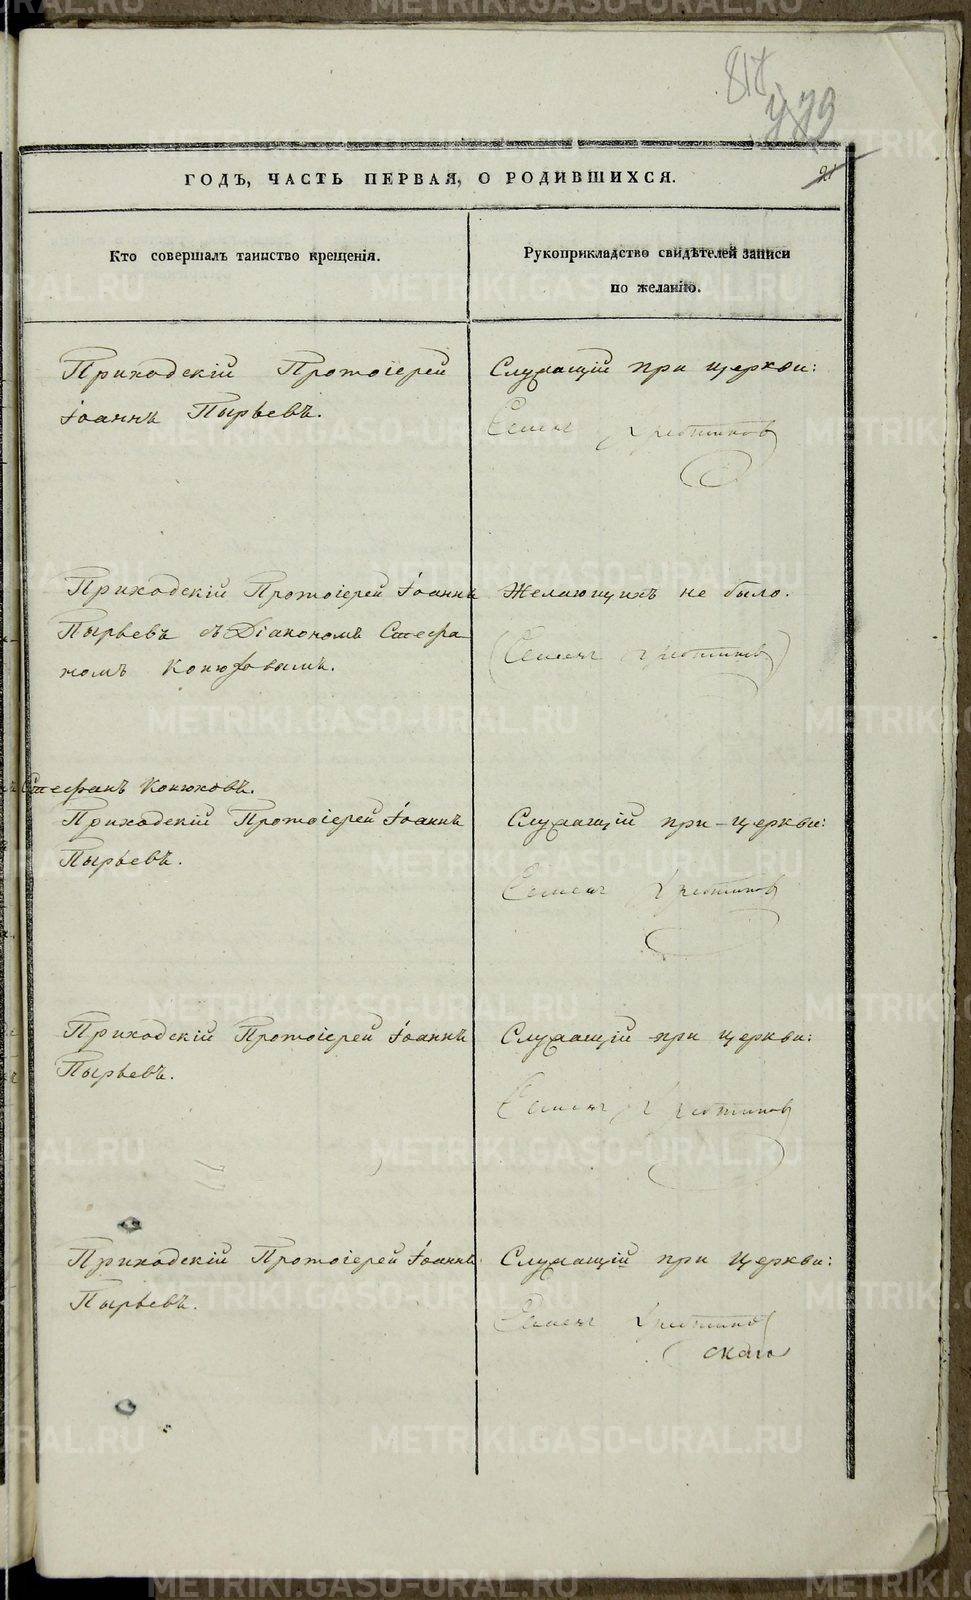 817
21
ГОДЪ, ЧАСТЬ ПЕРВАЯ, О РОДИВШИХСЯ.
Кто совершалъ таинство крещенія.
Рукоприкладство свидѣтелей записи
по желанію.
Приходскій Протоіерей
Іоаннъ Пырьевъ.
Служащій при церкви:
Семенъ
Приходскій Протоіерей Іоаннъ
Пырьевъ съ Діакономъ Стефа
номъ Конюховымъ.
Желающихъ не было.
Семенъ
Стефанъ Конюховъ.
Приходскій Протоіерей Іоаннъ
Пырьевъ.
Служащій при церкви:
Семенъ
Приходскій Протоіерей Іоаннъ
Пырьевъ.
Служащій при церкви:
Семенъ
Приходскій Протоіерей Іоаннъ
Пырьевъ.
Служащій при Церкви:
Семенъ
скаго
METRIKI.GASO-URAL.RU